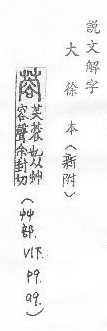 說文解字
大徐本(新附)
蓉
芙蓉也从艸
容聲余封切
(艸部. V1下. P9. a9.)